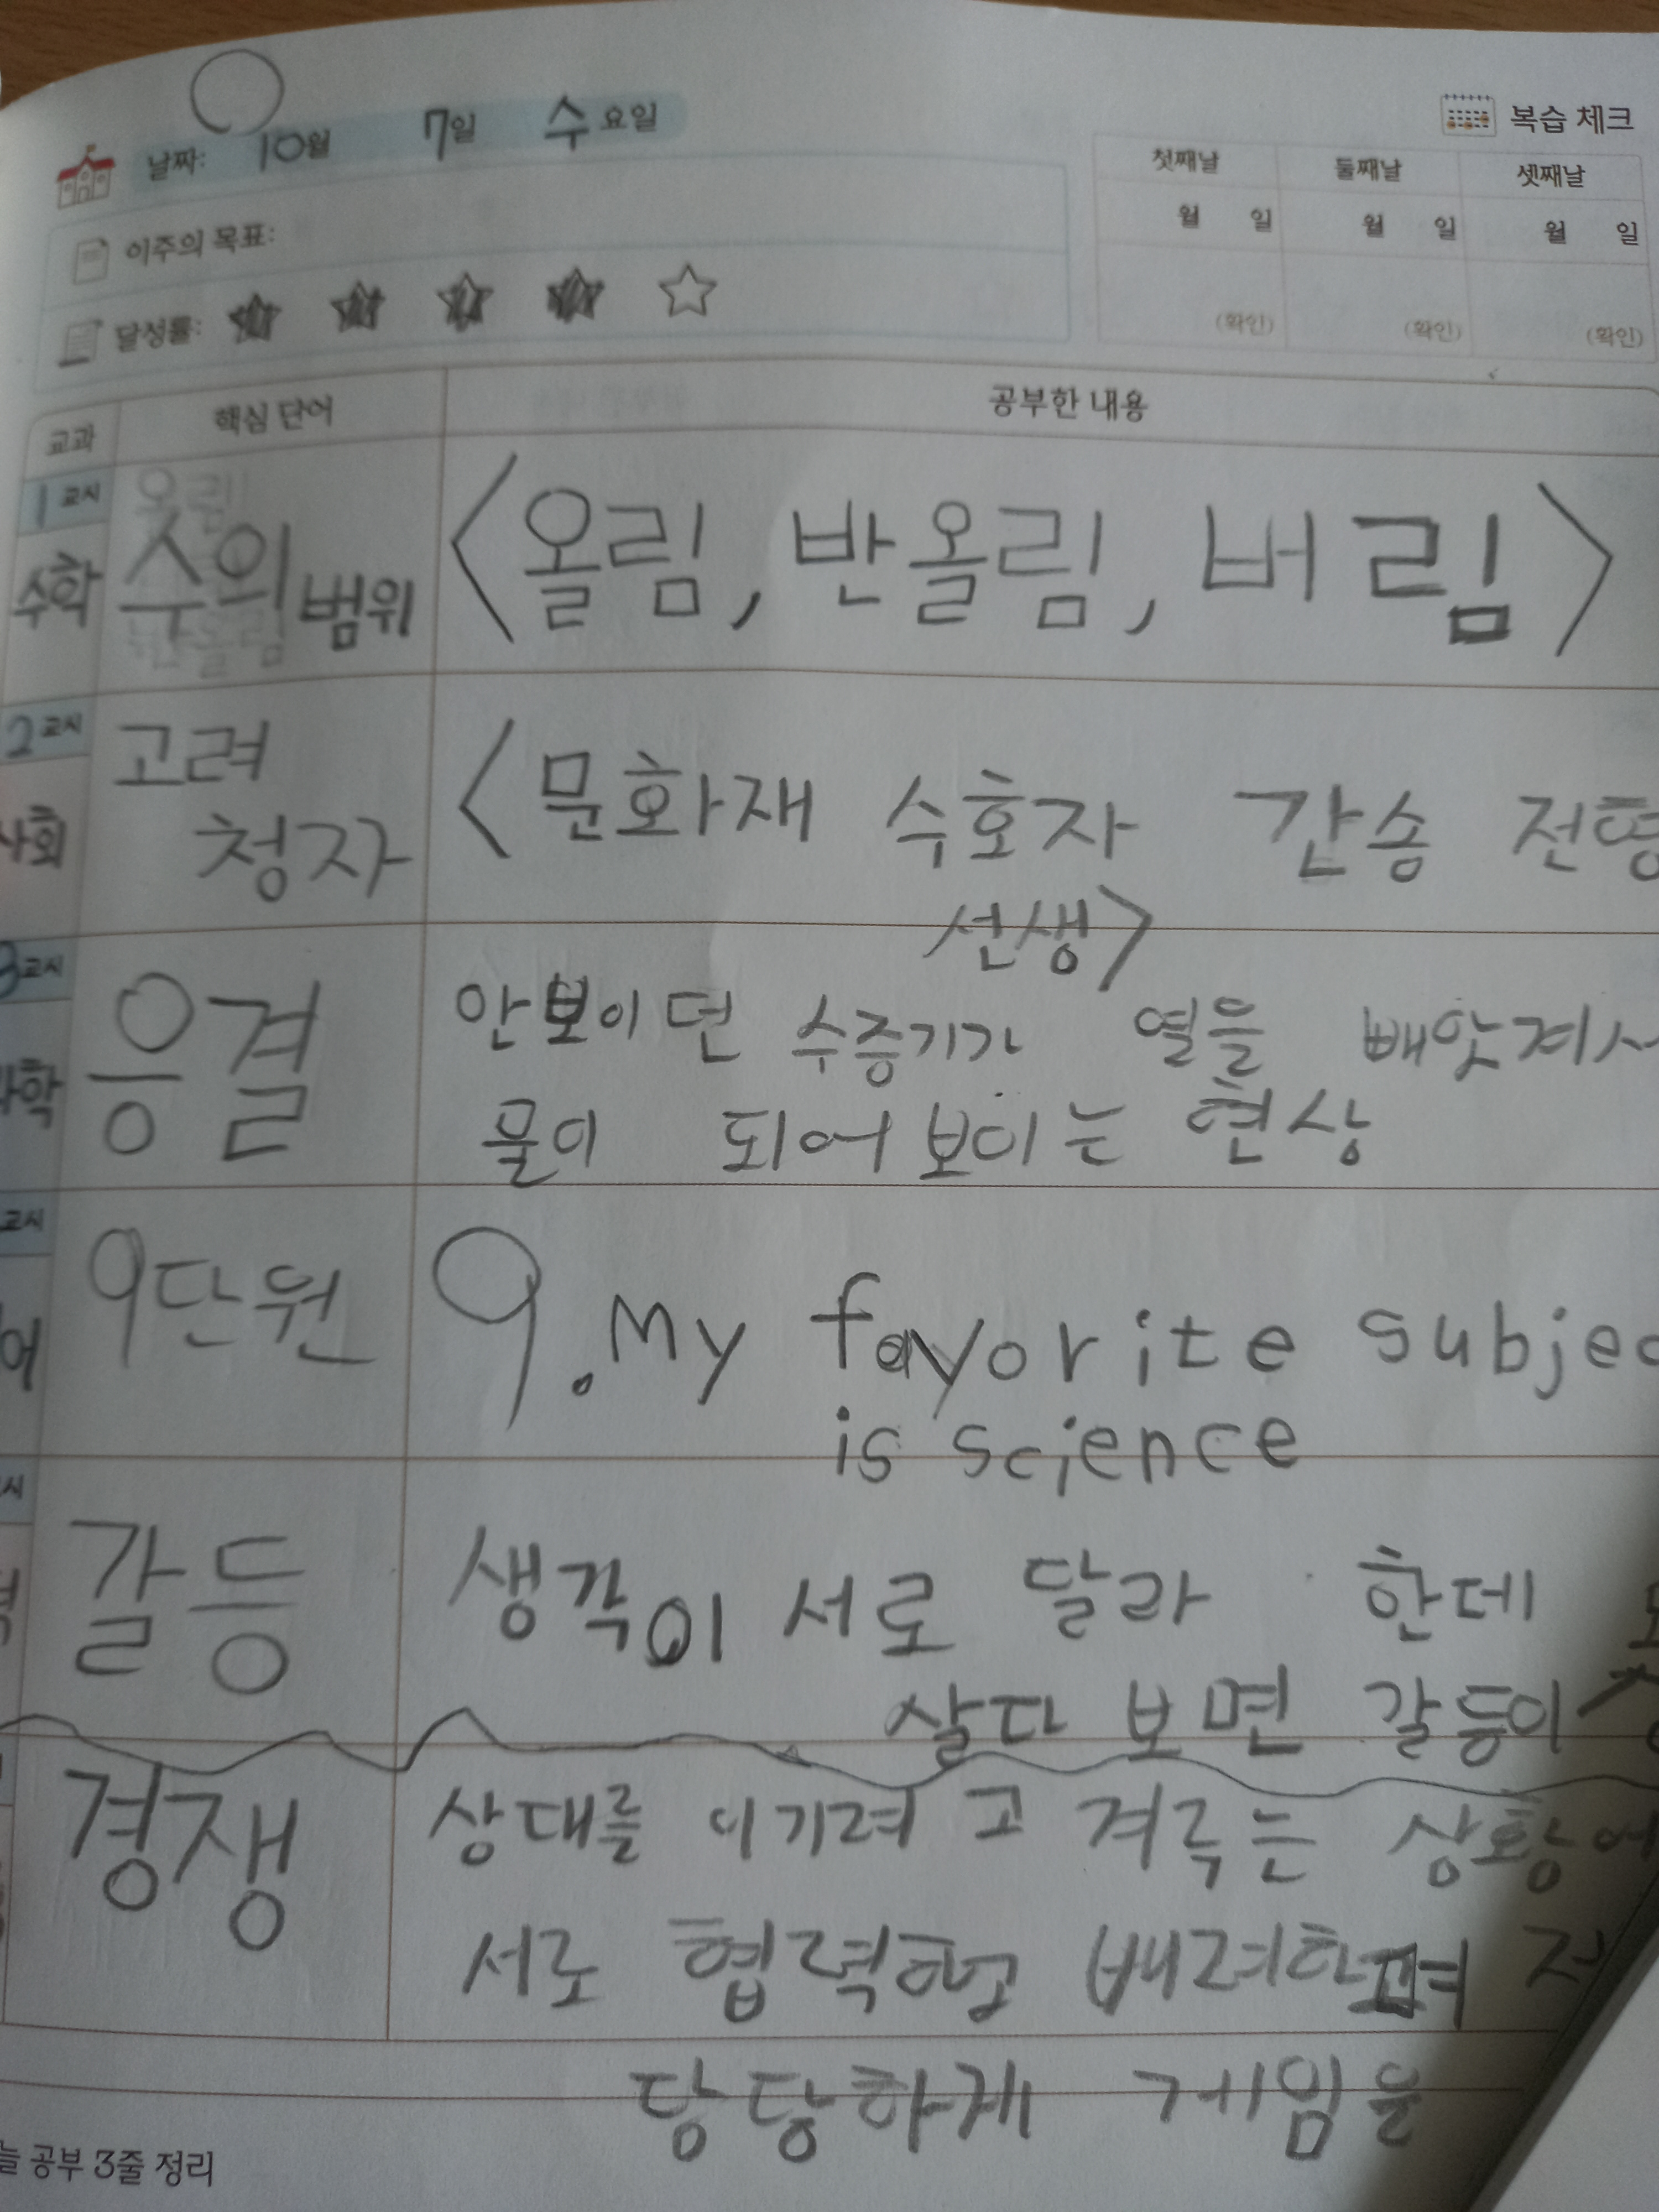 날짜: 10월 7일 수요일
복습 체크
첫째날 둘째날 셋째날
월 일 월 일 월 일
(확인) (확인) (확인)
이주의 목표:
달성률:
교과 핵심 단어 공부한 내용
1교시
수학 수의 범위 <올림, 반올림, 버림>
2교시
사회 고려 청자 <문화재 수호자 간송 전형
선생>
3교시
과학 응결 안보이던 수증기가 열을 빼앗겨서
물이 되어 보이는 현상
교시
어 9단원 9. My favorite subjec
is science
갈등 생각이 서로 달라 한데
살다 보면 갈등이
경쟁 상대를 이기려고 겨루는 상황에
서로 협력하고 배려하며
당당하게 게임을
늘 공부 3줄 정리